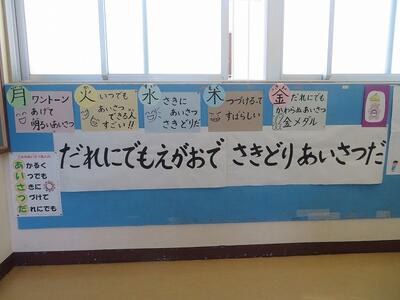 月 ワントーン
あげて
明るいあいさつ
火 いつでも
あいさつ
できる人
すごい!!
水 さきに
あいさつ
さきどりだ
木 つづけるって
すばらしい
金 だれにでも
かわらぬあいさつ
金メダル
だれにでもえがおで さきどりあいさつだ
あかるく
いつでも
さきに
つづけて
だれにでも